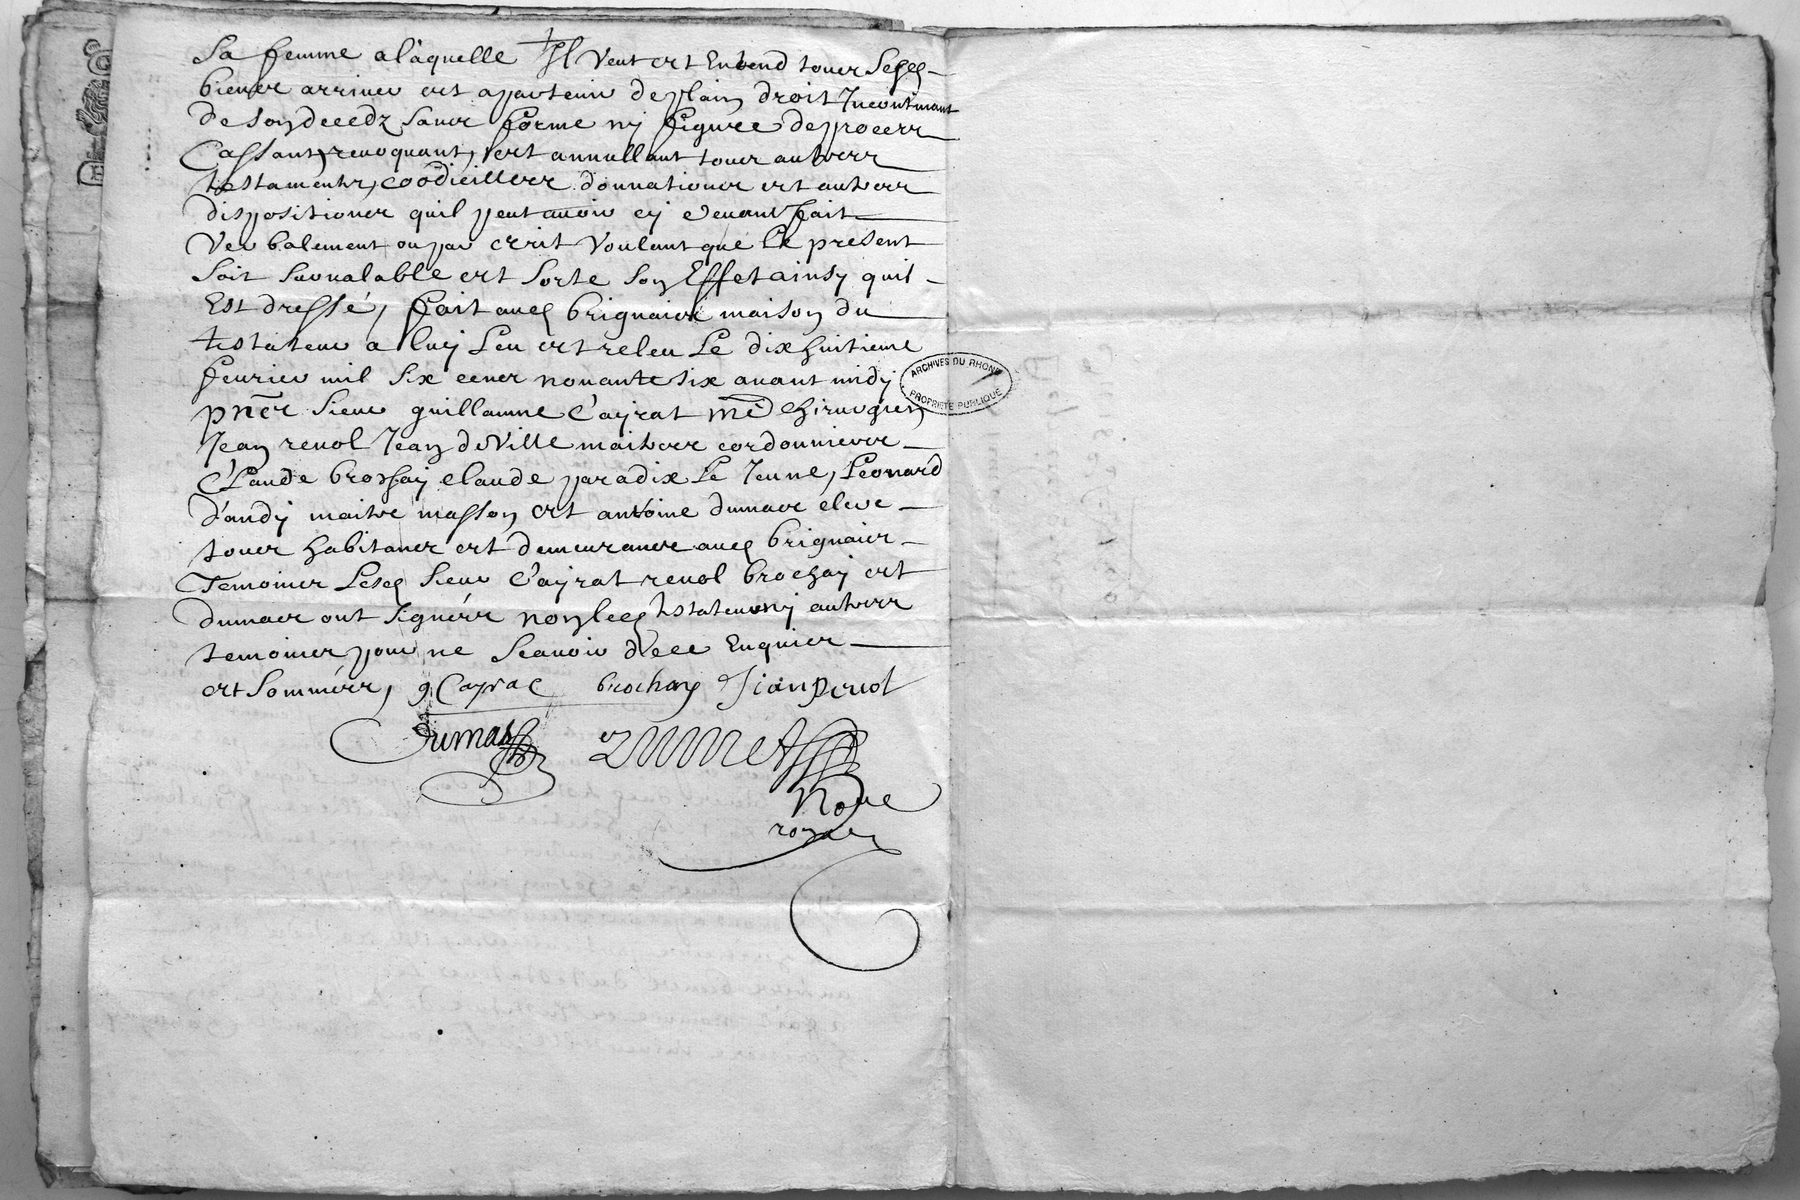 Sa femme a laquelle Il veut et Entend tous Sesd
biens arriver et apartenir de plain droit Incontinant
de son decedz sans forme ny figure de proces
Cassant, revoquant, et annullant tous autres
testaments, coodicilles donnations et autres
dispositions quil peut avoir cy devant fait
Verbalement ou par escrit Voulant que le present
soit seul valable et sorte son Effet ainsy quil
Est dressé, fait aud brignais maison du
testateur a luy leu et releu le dixhuitieme
fevrier mil six cens nonante six avant midy
pnts Sieur guillaume Cayrat me chirurgien
Jean revol Jean deville maitres cordonniers
Claude brossay claude paradix le Jeune, Leonard
dandy maitre masson et antoine dumas cleve
tous habitans et demeurans aud brignais
Temoins lesd Sieur Cayrat revol brochay et
dumas ont signés non led testateur ny autres
temoins pour ne scavoir de ce Enquis
et Sommés, g Cayrac brochay Jean Revol
Dumas
Nore
royal
ARCHIVES DU RHONE
PROPRIETE PUBLIQUE